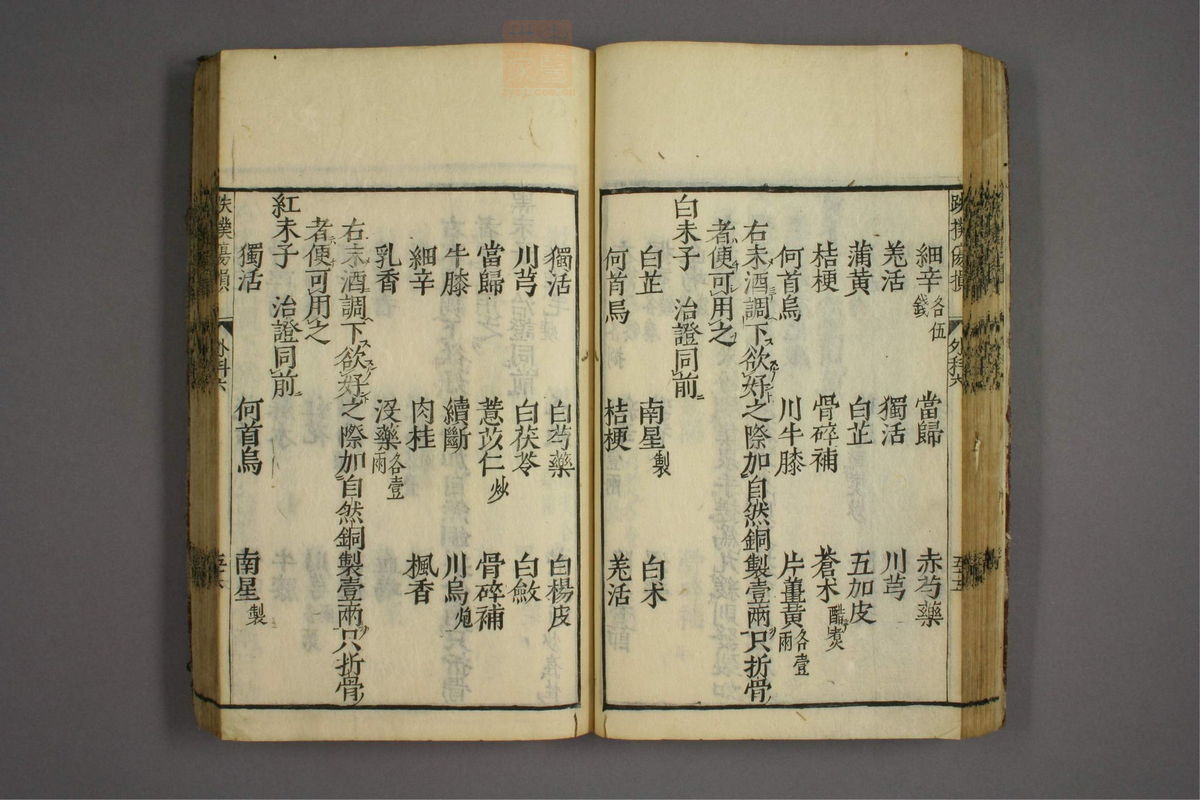 細辛各伍錢 當歸 赤芍藥
羗活 獨活 川芎
蒲黄 白芷 五加皮
桔梗 骨碎補 蒼术醋煑
何首烏 川牛膝 片薑黄各壹兩
右末酒調下欲好之際加自然銅製壹兩只折骨
者便可用之
白末子 治證同前
白芷 南星製 白术
何首烏 桔梗 羗活
獨活 白芍藥 白楊皮
川芎 白茯苓 白斂
當歸 薏苡仁炒 骨碎補
牛膝 續斷 川烏炮
細辛 肉桂 楓香
乳香 沒藥各壹兩
右末酒調下欲好之際加自然銅製壹兩只折骨
者便可用之
紅末子 治證同前
獨活 何首烏 南星製
外科六